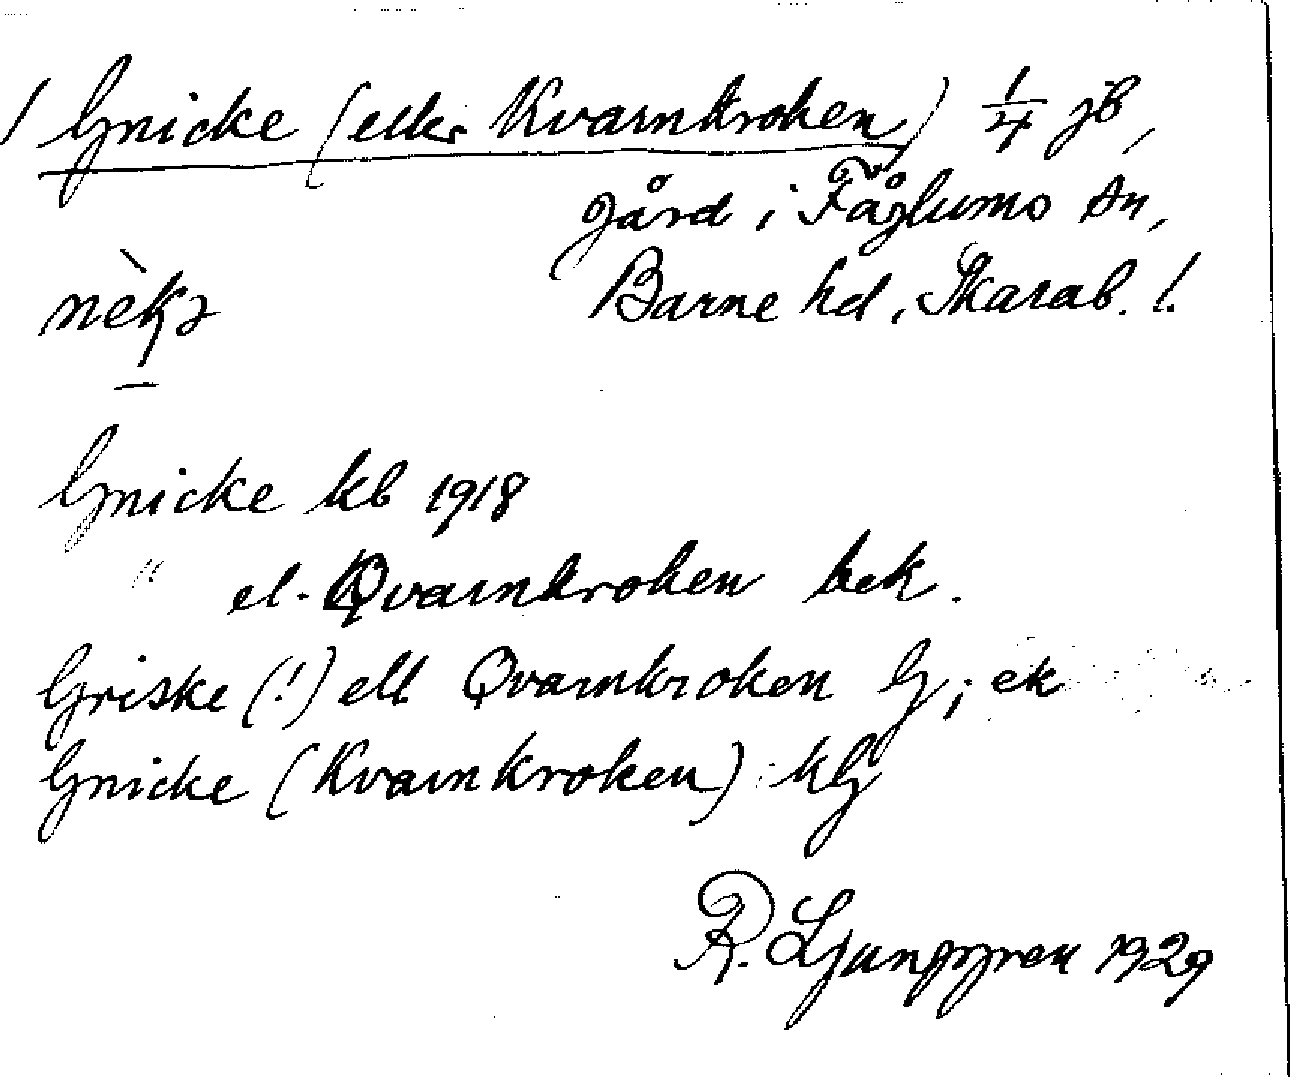 / Gnicke (eller Kvarnkroken) 1/4 jb,
gård i Fåglums sn,
Barne hd, Skarab. l.
nèkə
Gnicke kb 1918
" el. Qvarnkroken bek.
Griske (!) ell Qvarnkroken G; ek
Gnicke (Kvarnkroken) kG
R. Ljunggren 1929